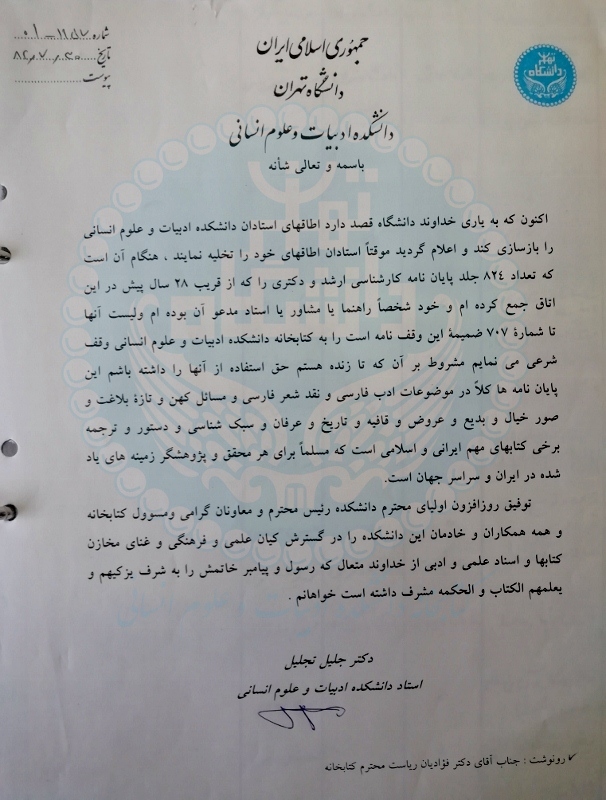 شماره ۱۱۱۵۷-۰۱
تاریخ ۸۲,۷,۳۰
پیوست
جمهوری اسلامی ایران
دانشگاه تهران
دانشکده ادبیات و علوم انسانی
باسمه و تعالی شأنه
اکنون که به یاری خداوند دانشگاه قصد دارد اطاقهای استادان دانشکده ادبیات و علوم انسانی
را بازسازی کند و اعلام گردید موقتاً استادان اطاقهای خود را تخلیه نمایند ، هنگام آن است
که تعداد ۸۲۴ جلد پایان نامه کارشناسی ارشد و دکتری را که از قریب ۲۸ سال پیش در این
اتاق جمع کرده ام و خود شخصاً راهنما یا مشاور یا استاد مدعو آن بوده ام ولیست آنها
تا شمارۀ ۷۰۷ ضمیمۀ این وقف نامه است را به کتابخانه دانشکده ادبیات و علوم انسانی وقف
شرعی می نمایم مشروط بر آن که تا زنده هستم حق استفاده از آنها را داشته باشم این
پایان نامه ها کلاً در موضوعات ادب فارسی و نقد شعر فارسی و مسائل کهن و تازۀ بلاغت و
صور خیال و بدیع و عروض و قافیه و تاریخ و عرفان و سبک شناسی و دستور و ترجمه
برخی کتابهای مهم ایرانی و اسلامی است که مسلماً برای هر محقق و پژوهشگر زمینه های یاد
شده در ایران و سراسر جهان است.
توفیق روزافزون اولیای محترم دانشکده رئیس محترم و معاونان گرامی ومسوول کتابخانه
و همه همکاران و خادمان این دانشکده را در گسترش کیان علمی و فرهنگی و غنای مخازن
کتابها و اسناد علمی و ادبی از خداوند متعال که رسول و پیامبر خاتمش را به شرف یزکیهم و
یعلمهم الکتاب و الحکمه مشرف داشته است خواهانم .
دکتر جلیل تجلیل
استاد دانشکده ادبیات و علوم انسانی
رونوشت : جناب آقای دکتر فؤادیان ریاست محترم کتابخانه